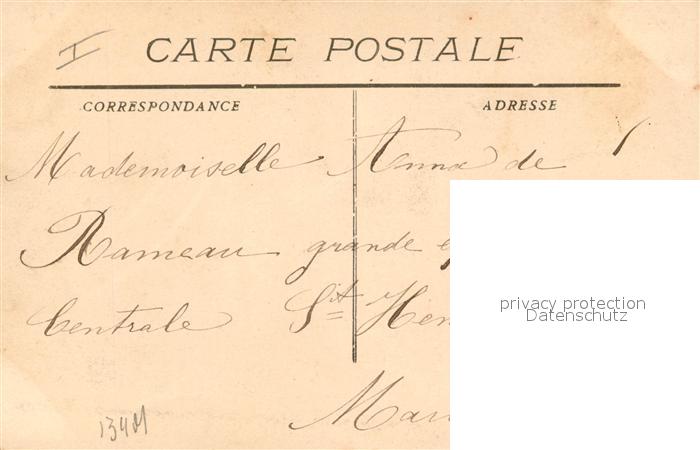 I
CARTE POSTALE
CORRESPONDANCE
ADRESSE
Mademoiselle Anna de
Rameau grande
Centrale St Hen
privacy protection
Datenschutz
Mar